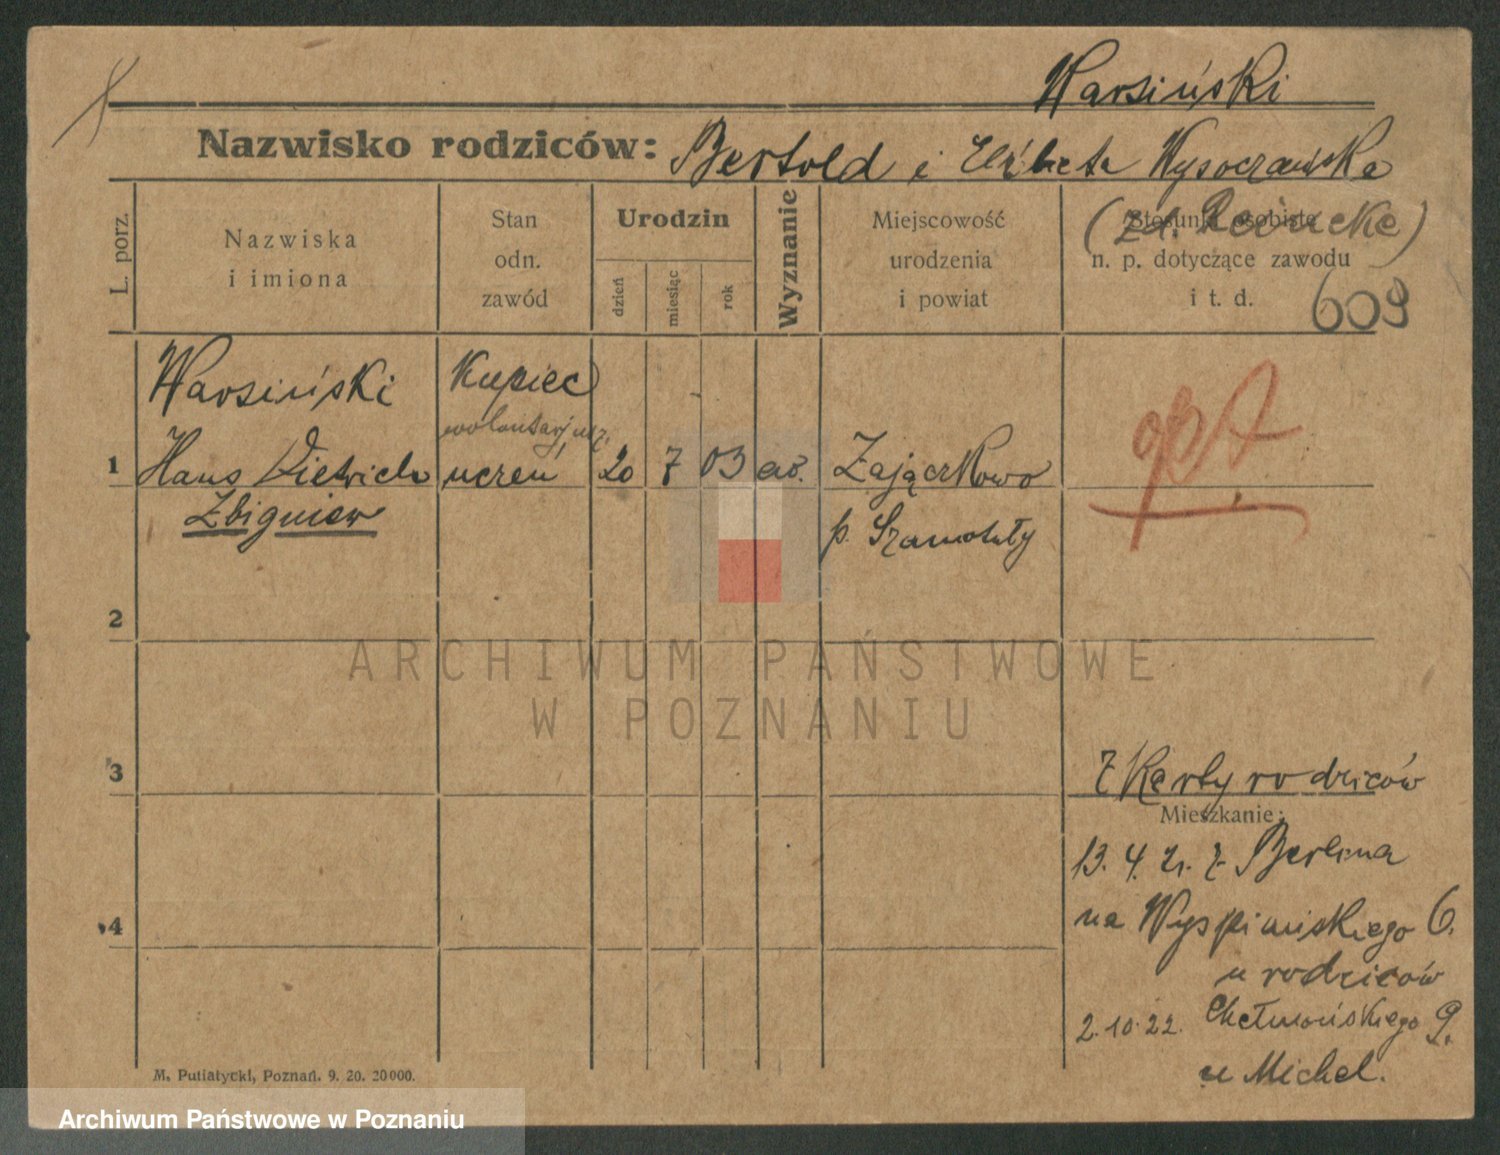 Warsiński
Nazwisko rodziców: Bertold i Elżbieta Wysoczańska
L. porz.
Nazwiska
i imiona
Stan
odn.
zawód
Urodzin
dzień
miesiąc
rok
Wyznanie
Miejscowość
urodzenia
i powiat
Stosunki osobiste
n. p. dotyczące zawodu
i t. d.
609
1
Warsiński
Hans Dietrich
Zbigniew
Kupiec
uczeń
20 7 03 ew.
Zajączkowo
p. Szamotuły
opt
2
3
4
z Karty rodziców
Mieszkanie:
13. 4. 21. z Berlina
na Wyspiańskiego 6.
u rodziców
2.10.22. Chełmońskiego 9.
u Michel.
M. Putiatycki, Poznań. 9. 20. 20000.
ARCHIWUM PAŃSTWOWE
W POZNANIU
Archiwum Państwowe w Poznaniu